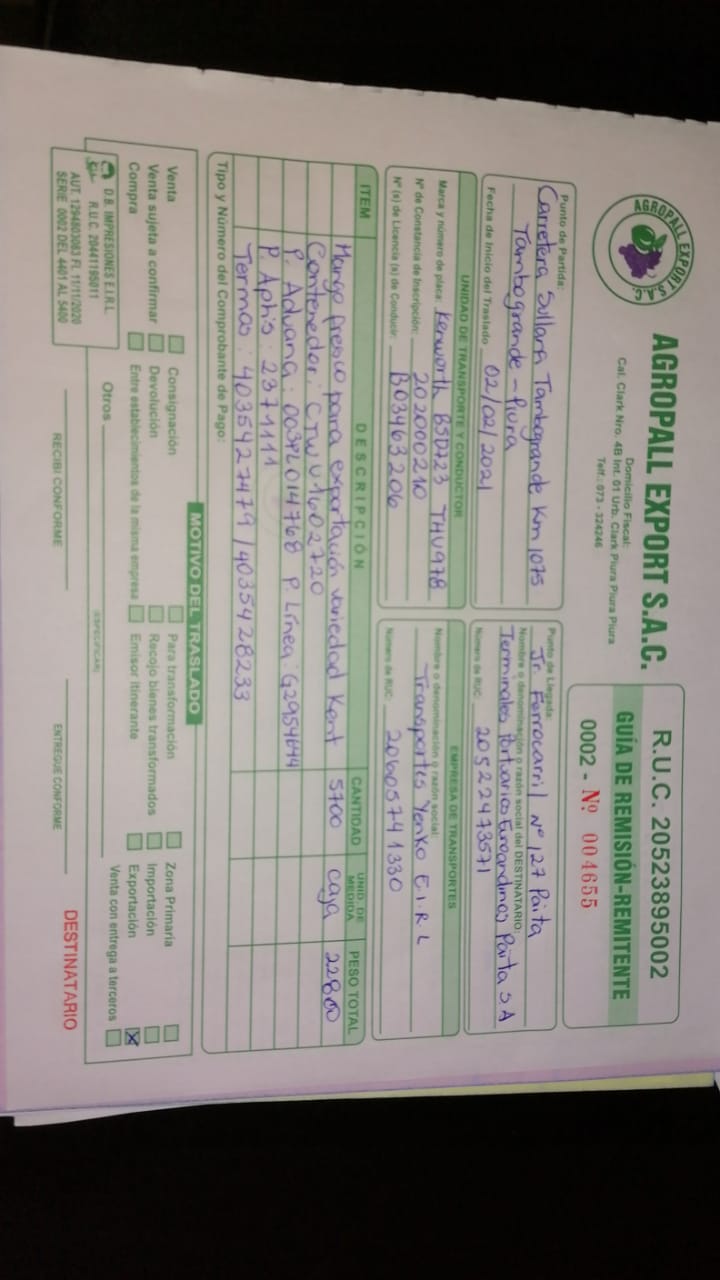 AGROPALL EXPORT S.A.C.
AGROPALL EXPORT S.A.C.
Domicilio Fiscal:
Cal. Clark Nro. 4B Int. 01 Urb. Clark Piura Piura Piura
Telf.: 073 - 324246
R.U.C. 20523895002
GUÍA DE REMISIÓN-REMITENTE
0002 - Nº 004655
Punto de Partida:
Carretera Sullana Tambogrande Km 1075
Tambogrande - Piura
Fecha de Inicio del Traslado 02/02/2021
Punto de Llegada:
Jr. Ferrocarril Nº 127 Paita
Nombre o denominación o razón social del DESTINATARIO:
Terminales Portuarios Euroandinos Paita S.A
Número de RUC: 20522473571
UNIDAD DE TRANSPORTE Y CONDUCTOR
Marca y número de placa: Kenworth B5D723 THV978
Nº de Constancia de Inscripción: 202000210
Nº (s) de Licencia (s) de Conducir: B03463206
EMPRESA DE TRANSPORTES
Nombre o denominación o razón social:
Transportes Yenko E.I.R.L
Número de RUC: 20605741330
ITEM DESCRIPCIÓN CANTIDAD UNID. DE MEDIDA PESO TOTAL
Mango fresco para exportación variedad Kent 5700 caja 22800
Contenedor: CTWU1602720
P. Aduana: 00382014768 P. Línea: G2954644
P. Aphis: 2371111
Termos: 4035427479 / 4035428233
Tipo y Número del Comprobante de Pago:
MOTIVO DEL TRASLADO
Venta Consignación Para transformación Zona Primaria
Venta sujeta a confirmar Devolución Recojo bienes transformados Importación
Compra Entre establecimientos de la misma empresa Emisor itinerante Exportación X
Otros Venta con entrega a terceros
(ESPECIFICAR)
D.B. IMPRESIONES E.I.R.L.
R.U.C. 20441195011
AUT. 1294803083 FI. 11/11/2020
SERIE 0002 DEL 4401 AL 5400
RECIBI CONFORME
ENTREGUE CONFORME
DESTINATARIO